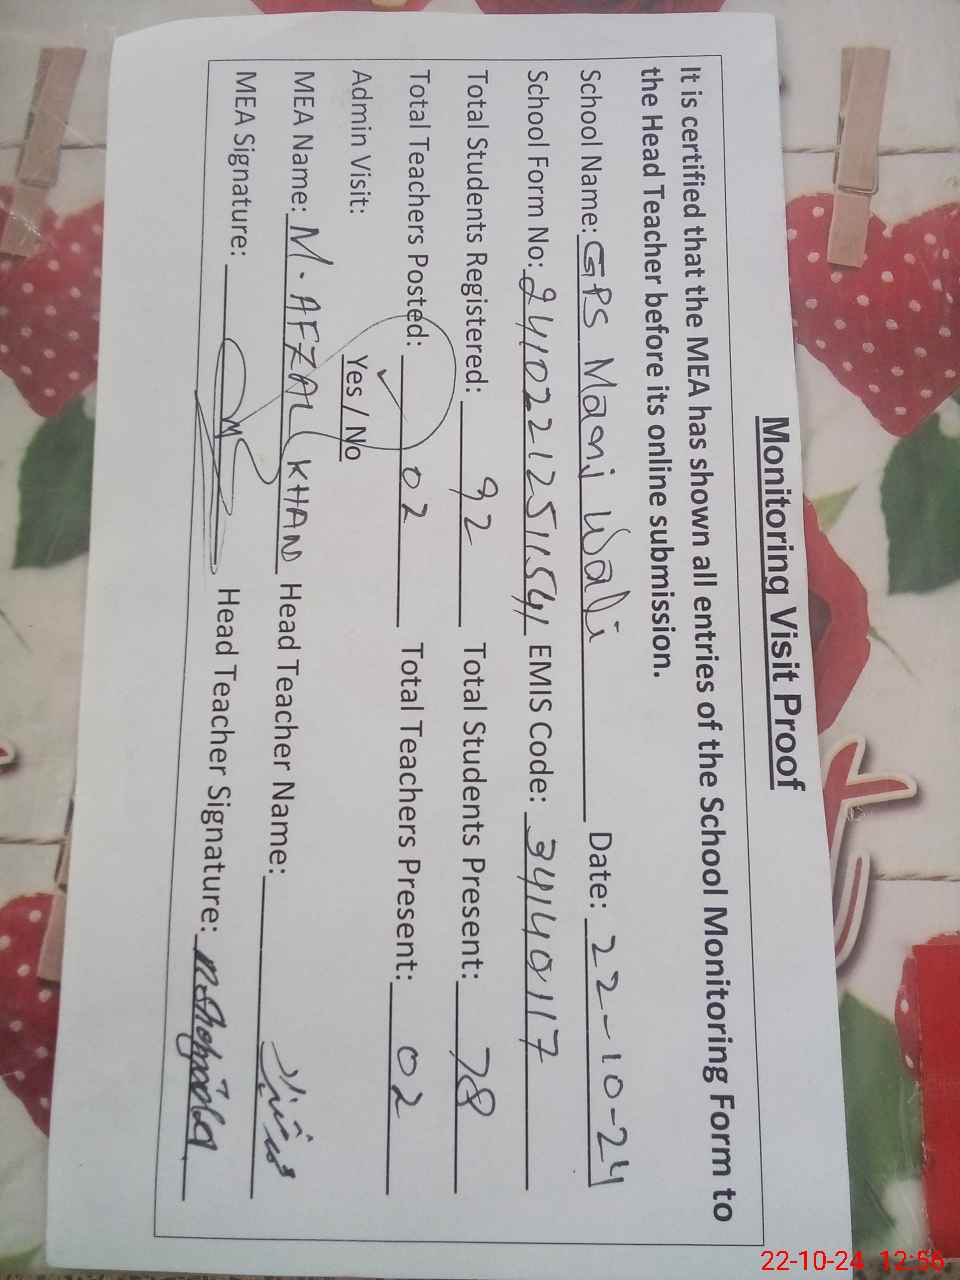 Monitoring Visit Proof
It is certified that the MEA has shown all entries of the School Monitoring Form to
the Head Teacher before its online submission.
School Name: GPS Maanj Wali Date: 22-10-24
School Form No: 24102212511541 EMIS Code: 34140117
Total Students Registered: 92 Total Students Present: 78
Total Teachers Posted: 02 Total Teachers Present: 02
Admin Visit: Yes / No
MEA Name: M. AFZAL KHAN Head Teacher Name:
MEA Signature: Head Teacher Signature:
22-10-24 12:56